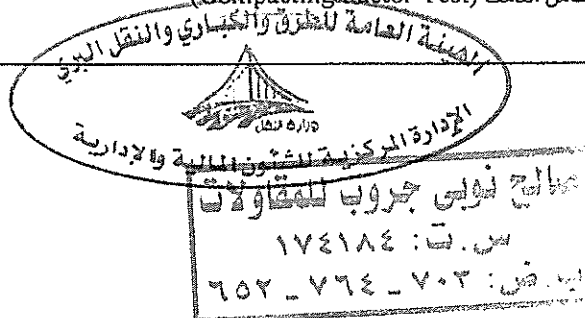 (Compacting Factor Test)
الهيئة العامة للطرق والكباري والنقل البري
وزارة النقل
الإدارة المركزية للشئون المالية والإدارية
صالح نوبى جروب للمقاولات
س.ت: ١٧٤١٨٤
ب.ض: ٧٠٣ _ ٧٦٤ _ ٦٥٢